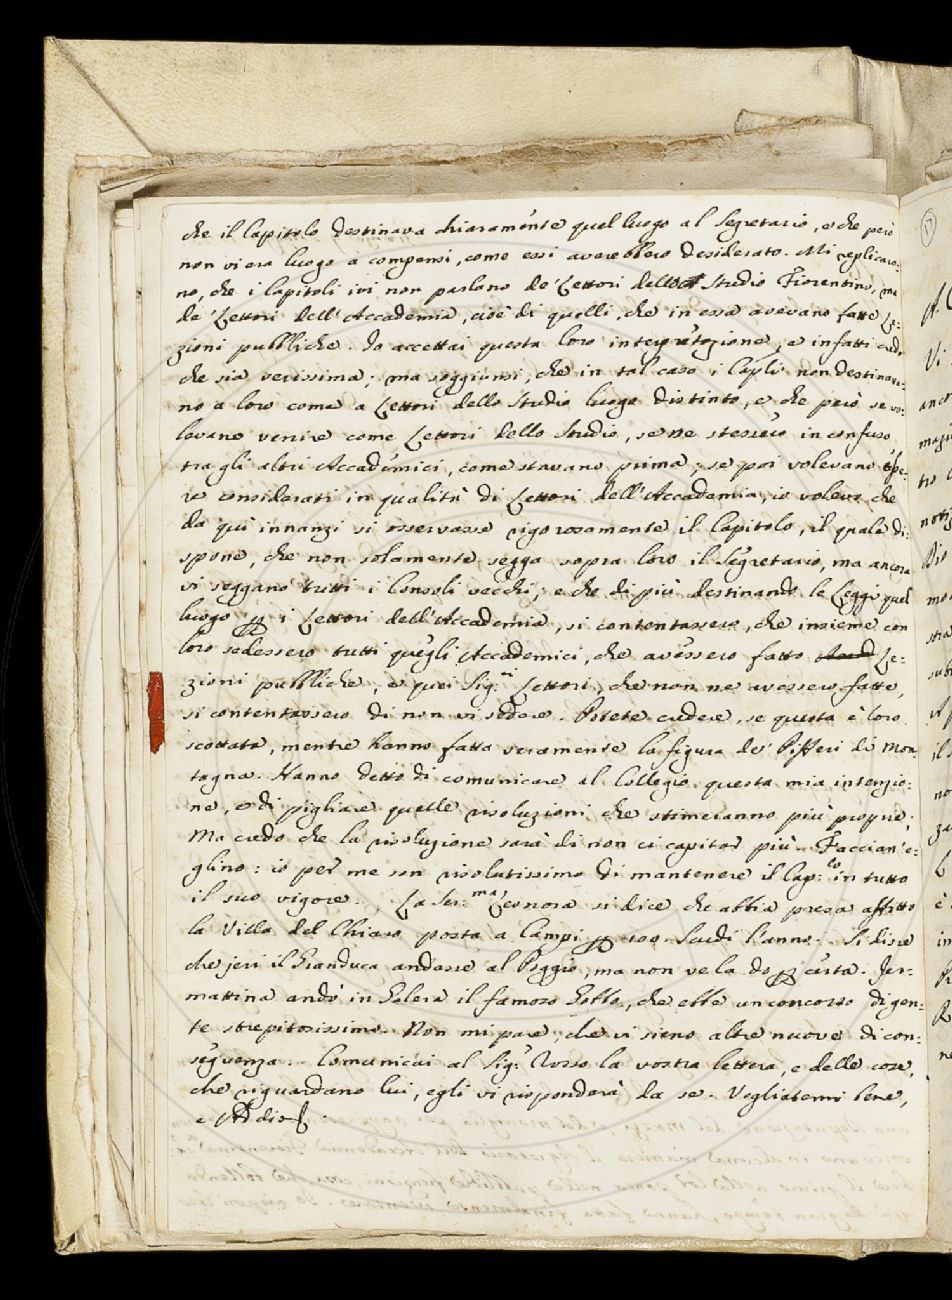 che il Capitolo destinava chiaram.te quel luogo al Segretario, e che però
non vi era luogo a compensi, come essi averebbero desiderato. Mi replicaro:
no, che i Capitoli ivi non parlano de' Lettori dello Studio Fiorentino, ma
de' Lettori dell'Accademia, cioè di quelli, che in essa avevano fatte Le:
zioni pubbliche. Io accettai questa loro interpretazione, e infatti credo
che sia verissima; ma soggiunsi, che in tal caso i Capli non destinava:
no a loro come a Lettori dello Studio luogo distinto, e che però se vo:
levano venire come Lettori dello Studio, se ne stessero in confuso
tra gli altri Accademici, come stavano prima; se poi volevano esse:
re considerati in qualità di Lettori dell'Accademia, io volevo che
da quì innanzi si osservasse rigorosamente il Capitolo, il quale di:
spone, che non solamente segga sopra loro il Segretario, ma ancora
vi seggano tutti i Consoli vecchi; e che di più destinando le Leggi quel
luogo p i Lettori dell'Accademia, si contentassero, che insieme con
loro sedessero tutti quegli Accademici, che avessero fatto Le:
zioni pubbliche, e quei Sig.ri Lettori, che non ne avessero fatte,
si contentassero di non vi sedere. Potete credere, se questa è loro
scottata, mentre hanno fatta veramente la figura de' Pifferi di Mon:
tagna. Hanno detto di comunicare al Collegio questa mia intenzio:
ne, e di pigliare quelle risoluzioni che stimeranno più proprie;
Ma credo che la risoluzione sarà di non ci capitar più. Faccian'e:
glino: io per me son risolutissimo di mantenere il Cap:lo in tutto
il suo vigore. La Ser:ma Leonora si dice che abbia presa affitto
la Villa del Chiaro posta a Campi p 100 Scudi l'anno. Si disse
che jeri il Granduca andasse al Poggio, ma non ve la do p certa. Jer:
mattina andò in Galera il famoso Gobbo, che ebbe un concorso di gen:
te strepitosissimo. Non mi pare, che vi sieno altre nuove di con:
seguenza. Comunicai al Sig.r Rosso la vostra lettera, e delle cose,
che riguardano lui, egli vi risponderà da se. Vogliatemi bene,
e Addio.